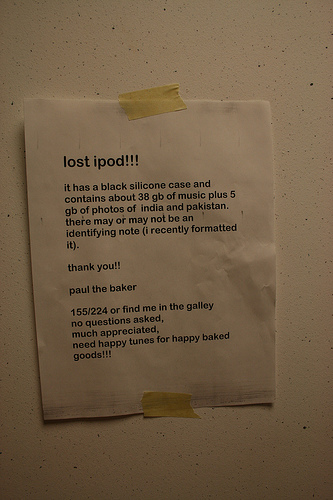 lost ipod!!!
it has a black silicone case and
contains about 38 gb of music plus 5
gb of photos of india and pakistan.
there may or may not be an
identifying note (i recently formatted
it).
thank you!!
paul the baker
155/224 or find me in the galley
no questions asked,
much appreciated,
need happy tunes for happy baked
goods!!!